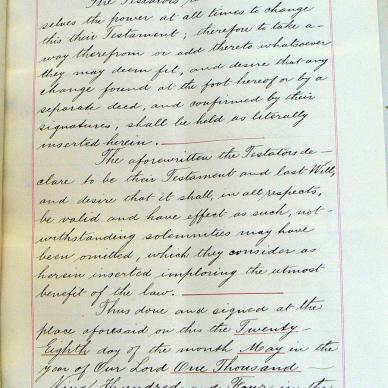 The Testators
selves the power at all times to change
this their Testament; therefore to take a-
way therefrom or add thereto whatsoever
they may deem fit, and desire that any
change found at the foot hereof or by a
separate deed, and confirmed by their
signatures, shall be held as literally
inserted herein.
The aforewritten the Testators de-
clare to be their Testament and last Will,
and desire that it shall, in all respects,
be valid and have effect as such, not-
withstanding solemnities may have
been omitted, which they consider as
herein inserted imploring the utmost
benefit of the law.
Thus done and signed at the
place aforesaid on this the Twenty-
Eighth day of the month May in the
year of Our Lord One Thousand
Hundred and Four in the